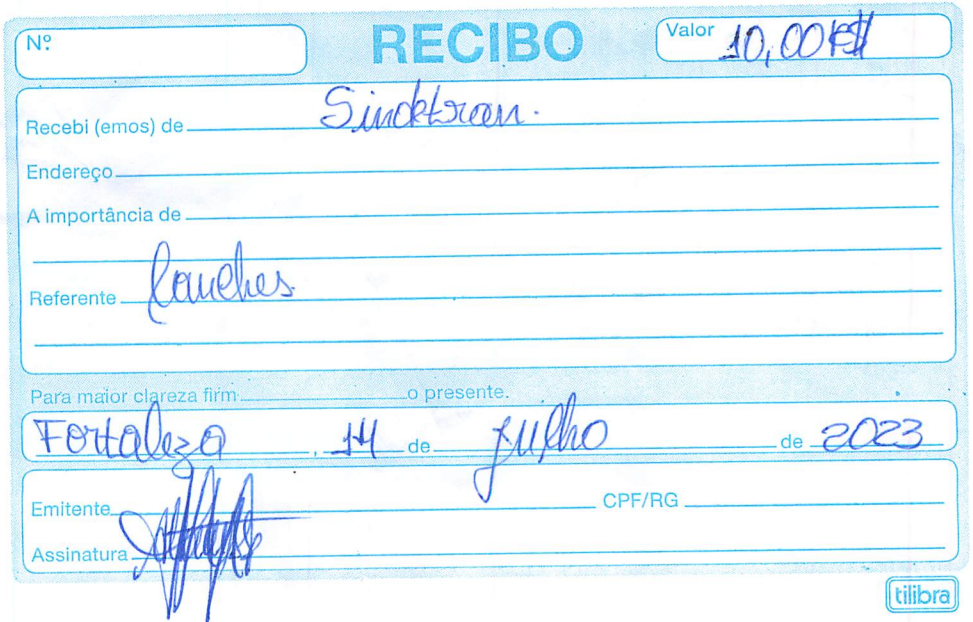 Nº RECIBO Valor 10,00 R$
Recebi (emos) de Sindetran.
Endereço
A importância de
Referente Lanches
Para maior clareza firm o presente.
Fortaleza, 14 de julho de 2023
Emitente CPF/RG
Assinatura
tilibra